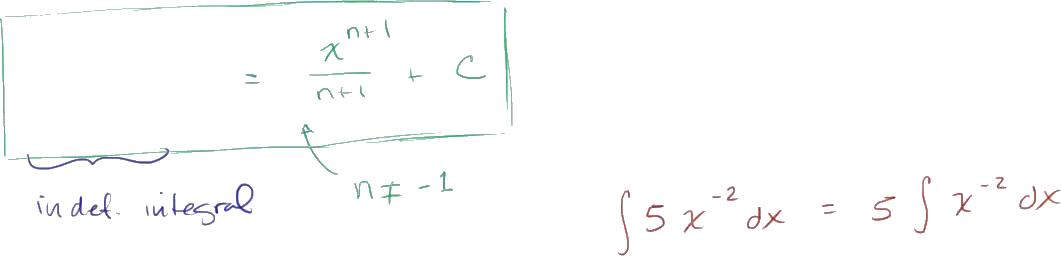 = x^{n+1}/(n+1) + C
n ≠ -1
indef. integral
∫ 5 x^{-2} dx = 5 ∫ x^{-2} dx